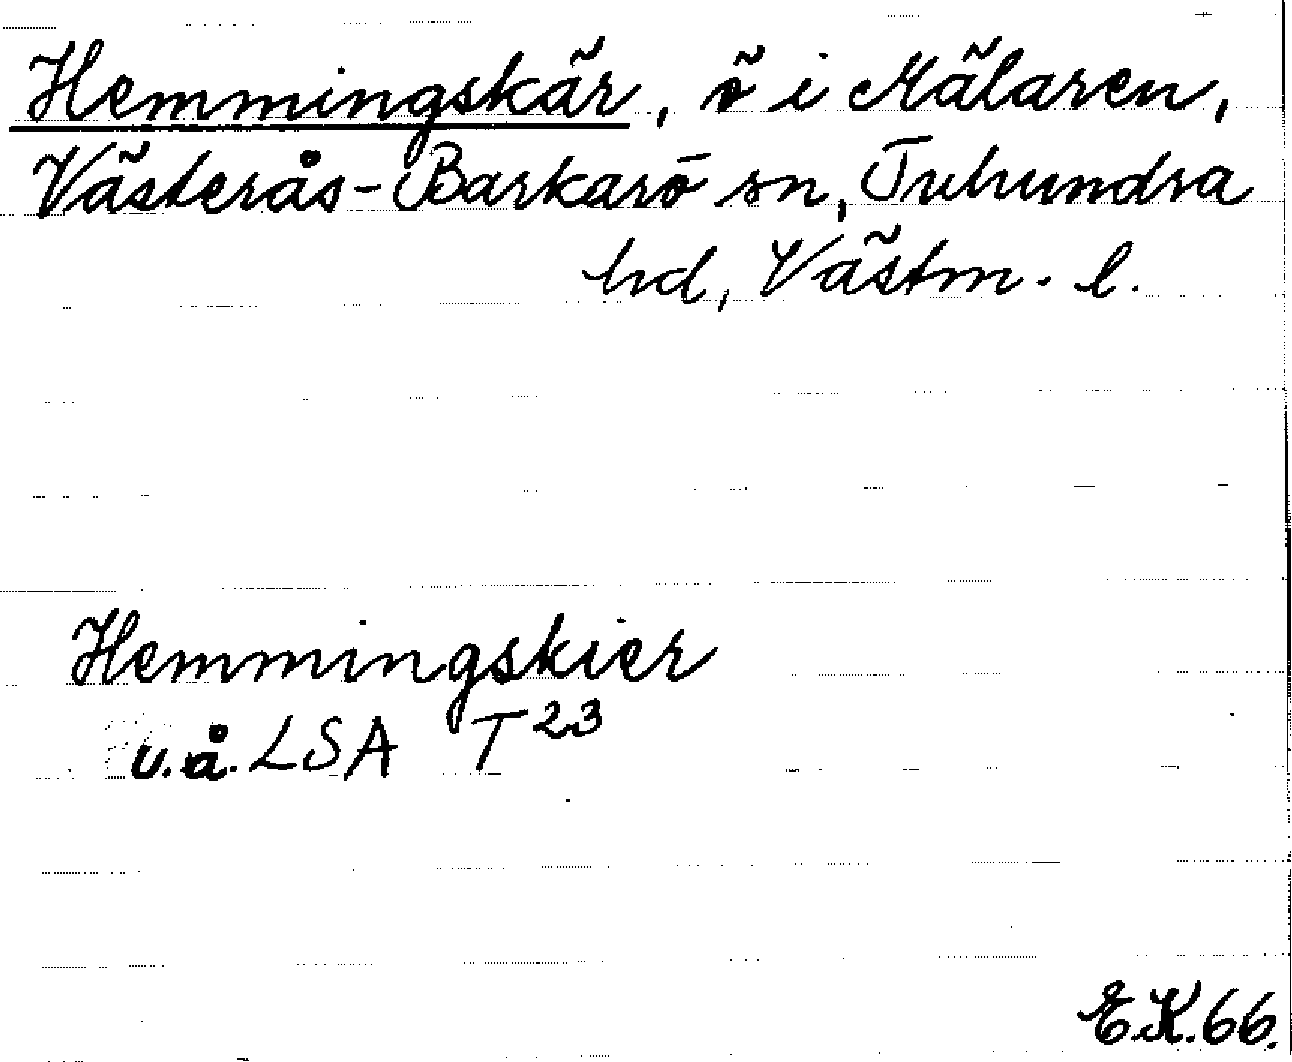 Hemmingskär, ö i Mälaren,
Västerås-Barkarö sn, Tuhundra
hd, Västm. l.
Hemmingskier
u.å. LSA T 23
E.K. 66.